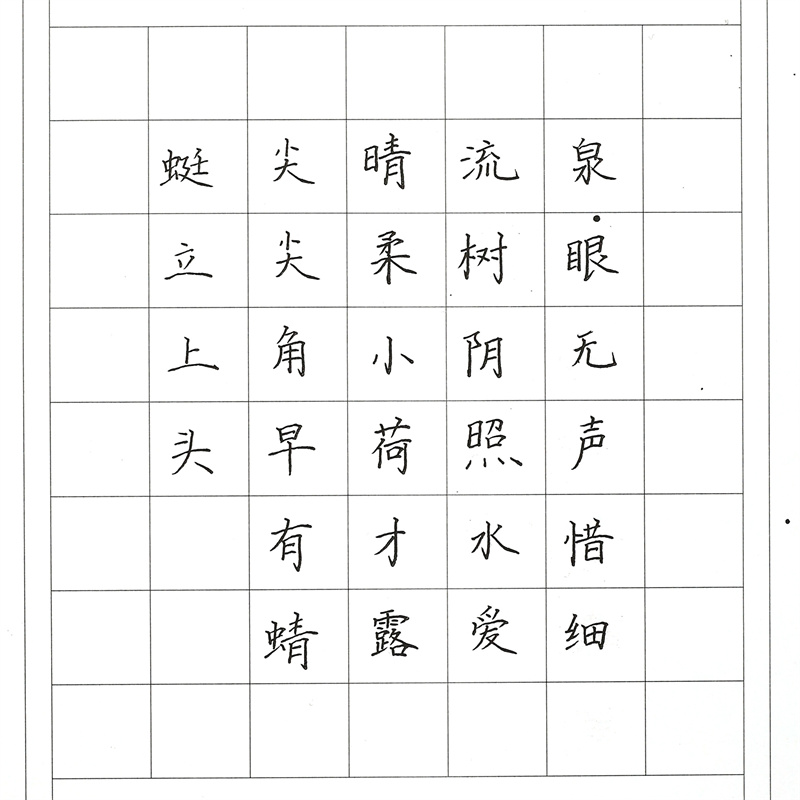 泉眼无声惜细
流树阴照水爱
晴柔小荷才露
尖尖角早有蜻
蜓立上头